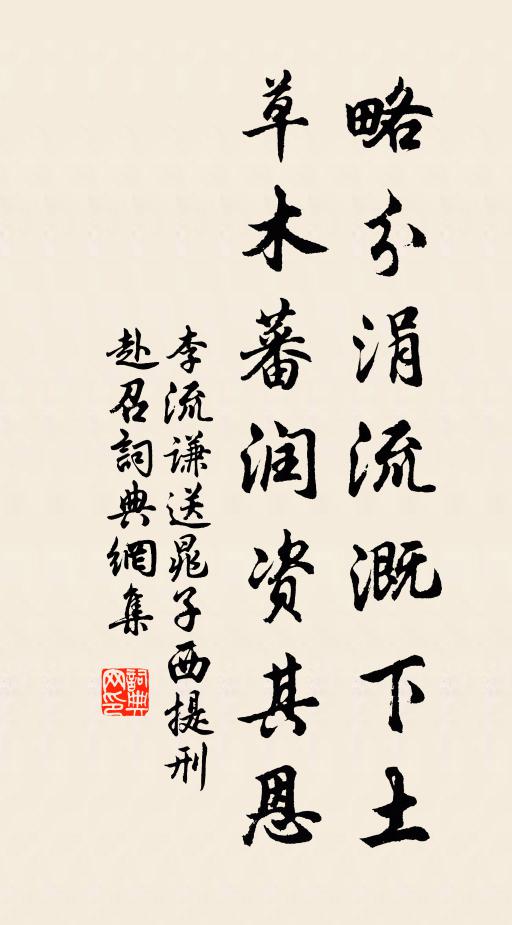 略分涓流溉下土
草木蕃润资其恩
李流谦送晁子西提刑
赴召詞典網集
詞典网印